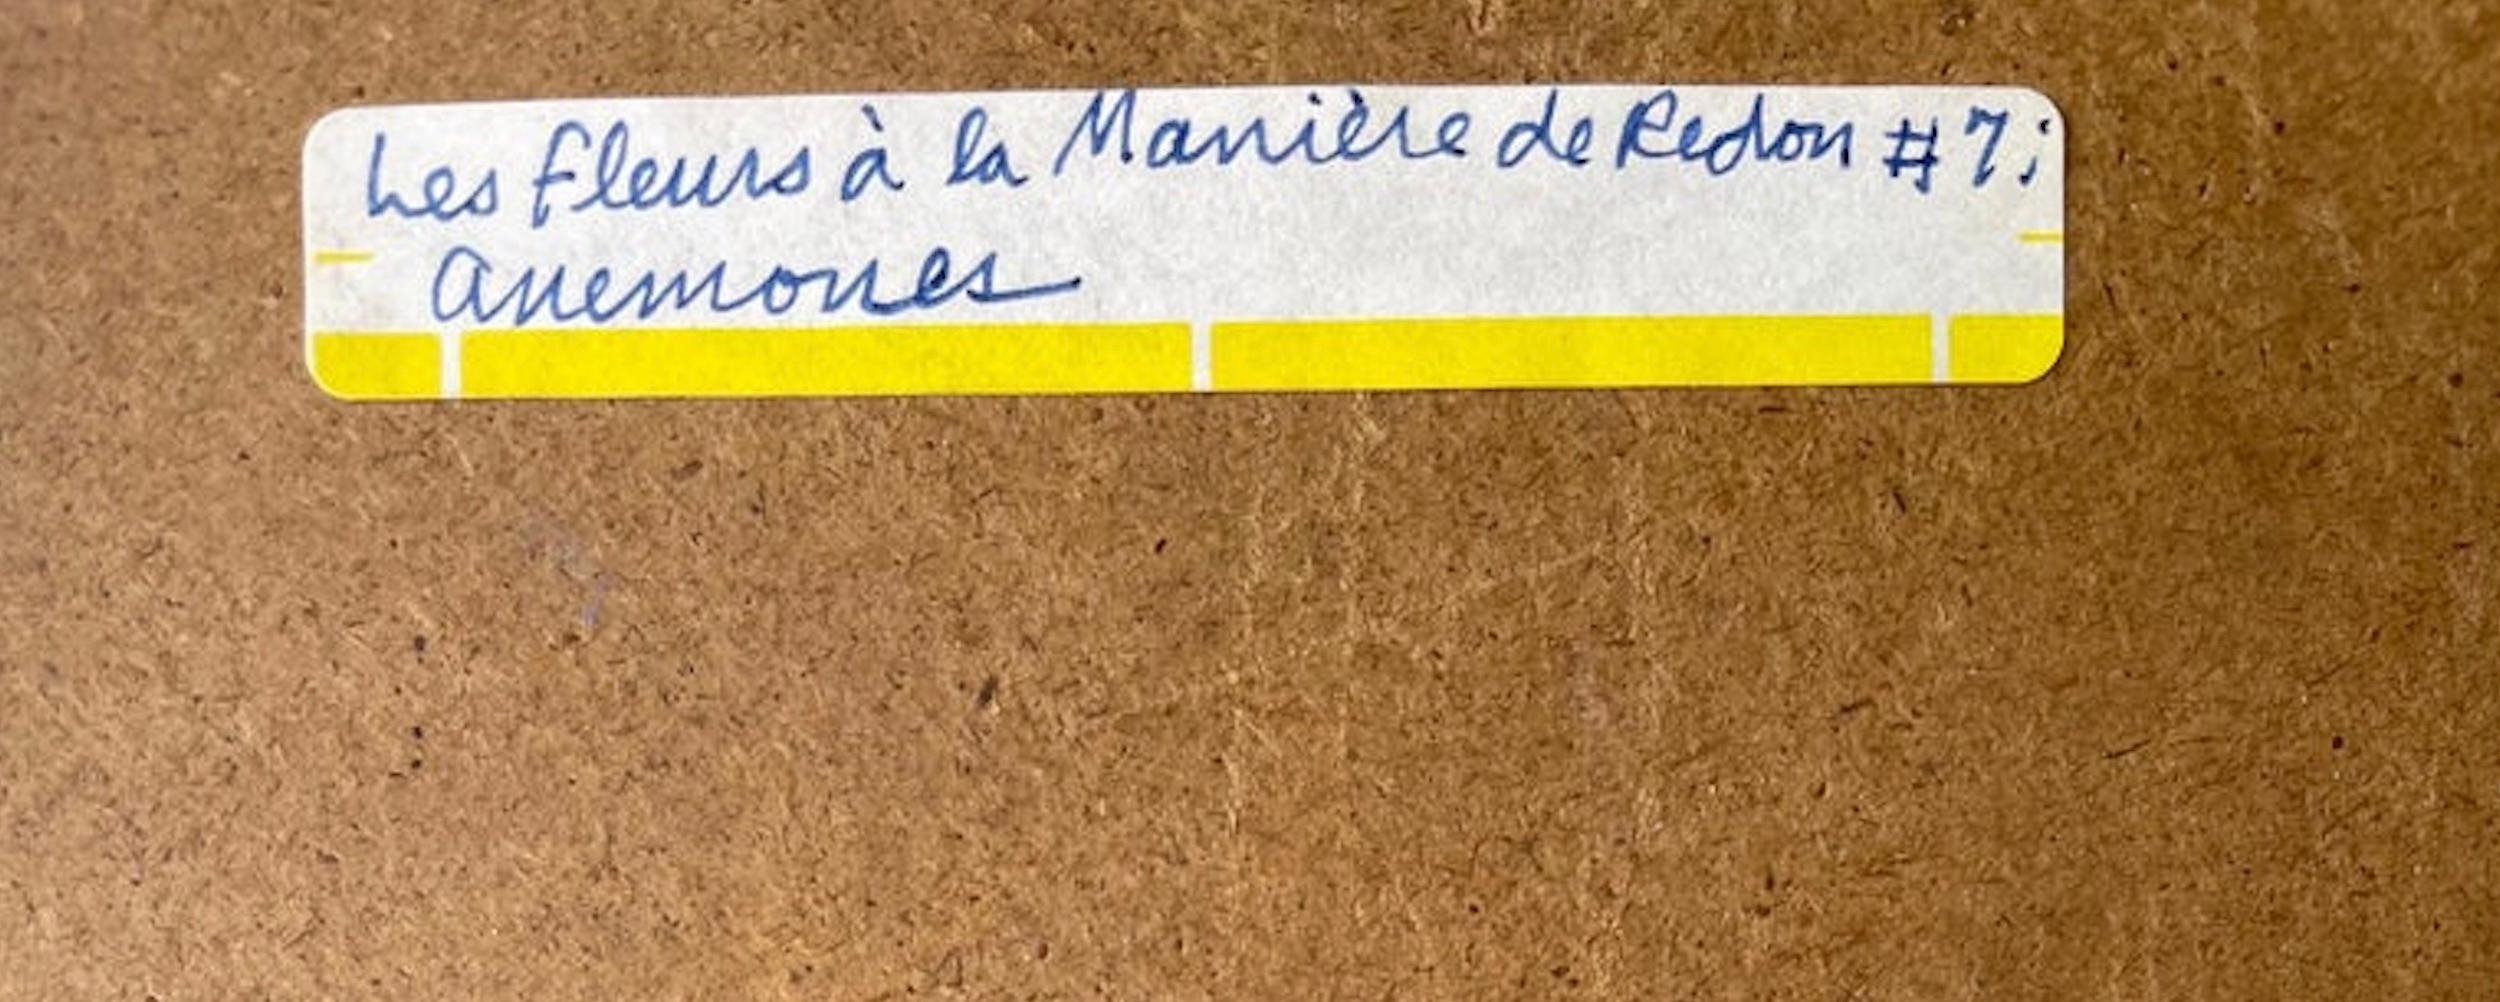 Les fleurs à la Manière de Redon #7;
Anemones